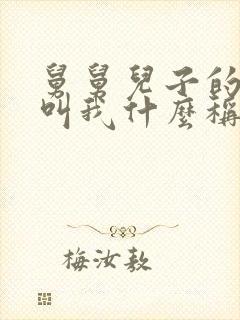 舅舅兒子的
叫我什麼稱
梅汝敖